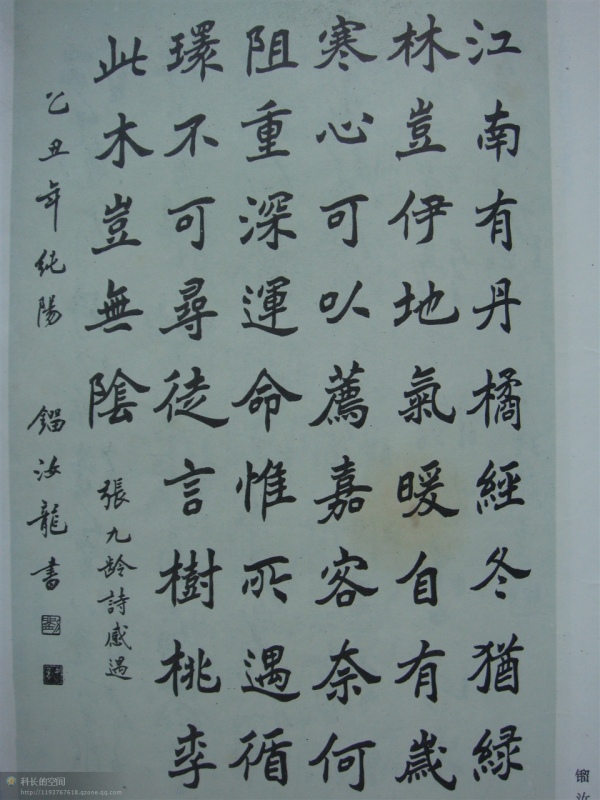 江南有丹橘經冬猶綠
林豈伊地氣暖自有歲
寒心可以薦嘉客奈何
阻重深運命惟所遇循
環不可尋徒言樹桃李
此木豈無陰
張九齡詩感遇
乙丑年純陽 鎦汝龍書
镏汝
科长的空间
http://1193767618.qzone.qq.com